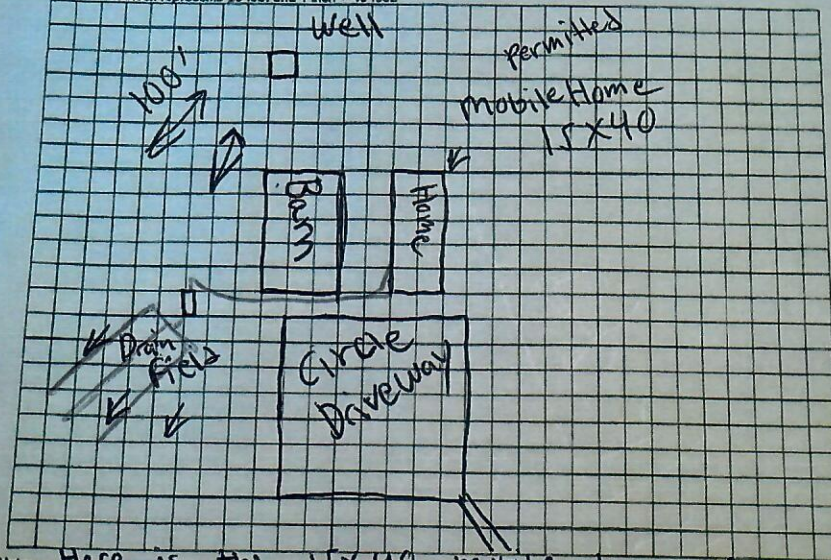 Well
permitted
mobile Home
15 X 40
100'
Barn
Home
Drain
Field
Circle
Driveway
Here is